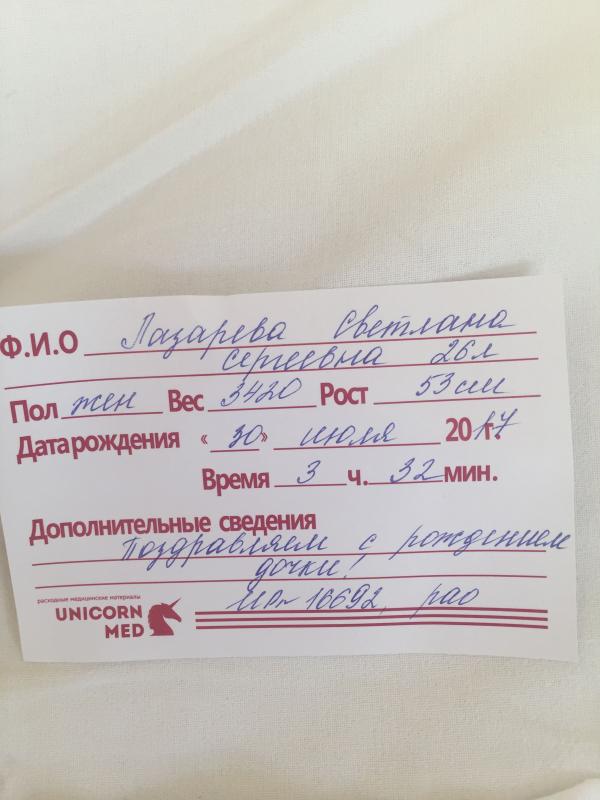 Ф.И.О Лазарева Светлана
Сергеевна 26л
Пол жен Вес 3420 Рост 53 см
Дата рождения «30» июля 2017г.
Время 3 ч. 32 мин.
Дополнительные сведения
Поздравляем с рождением
дочки!
расходные медицинские материалы
UNICORN
MED
16692, рао